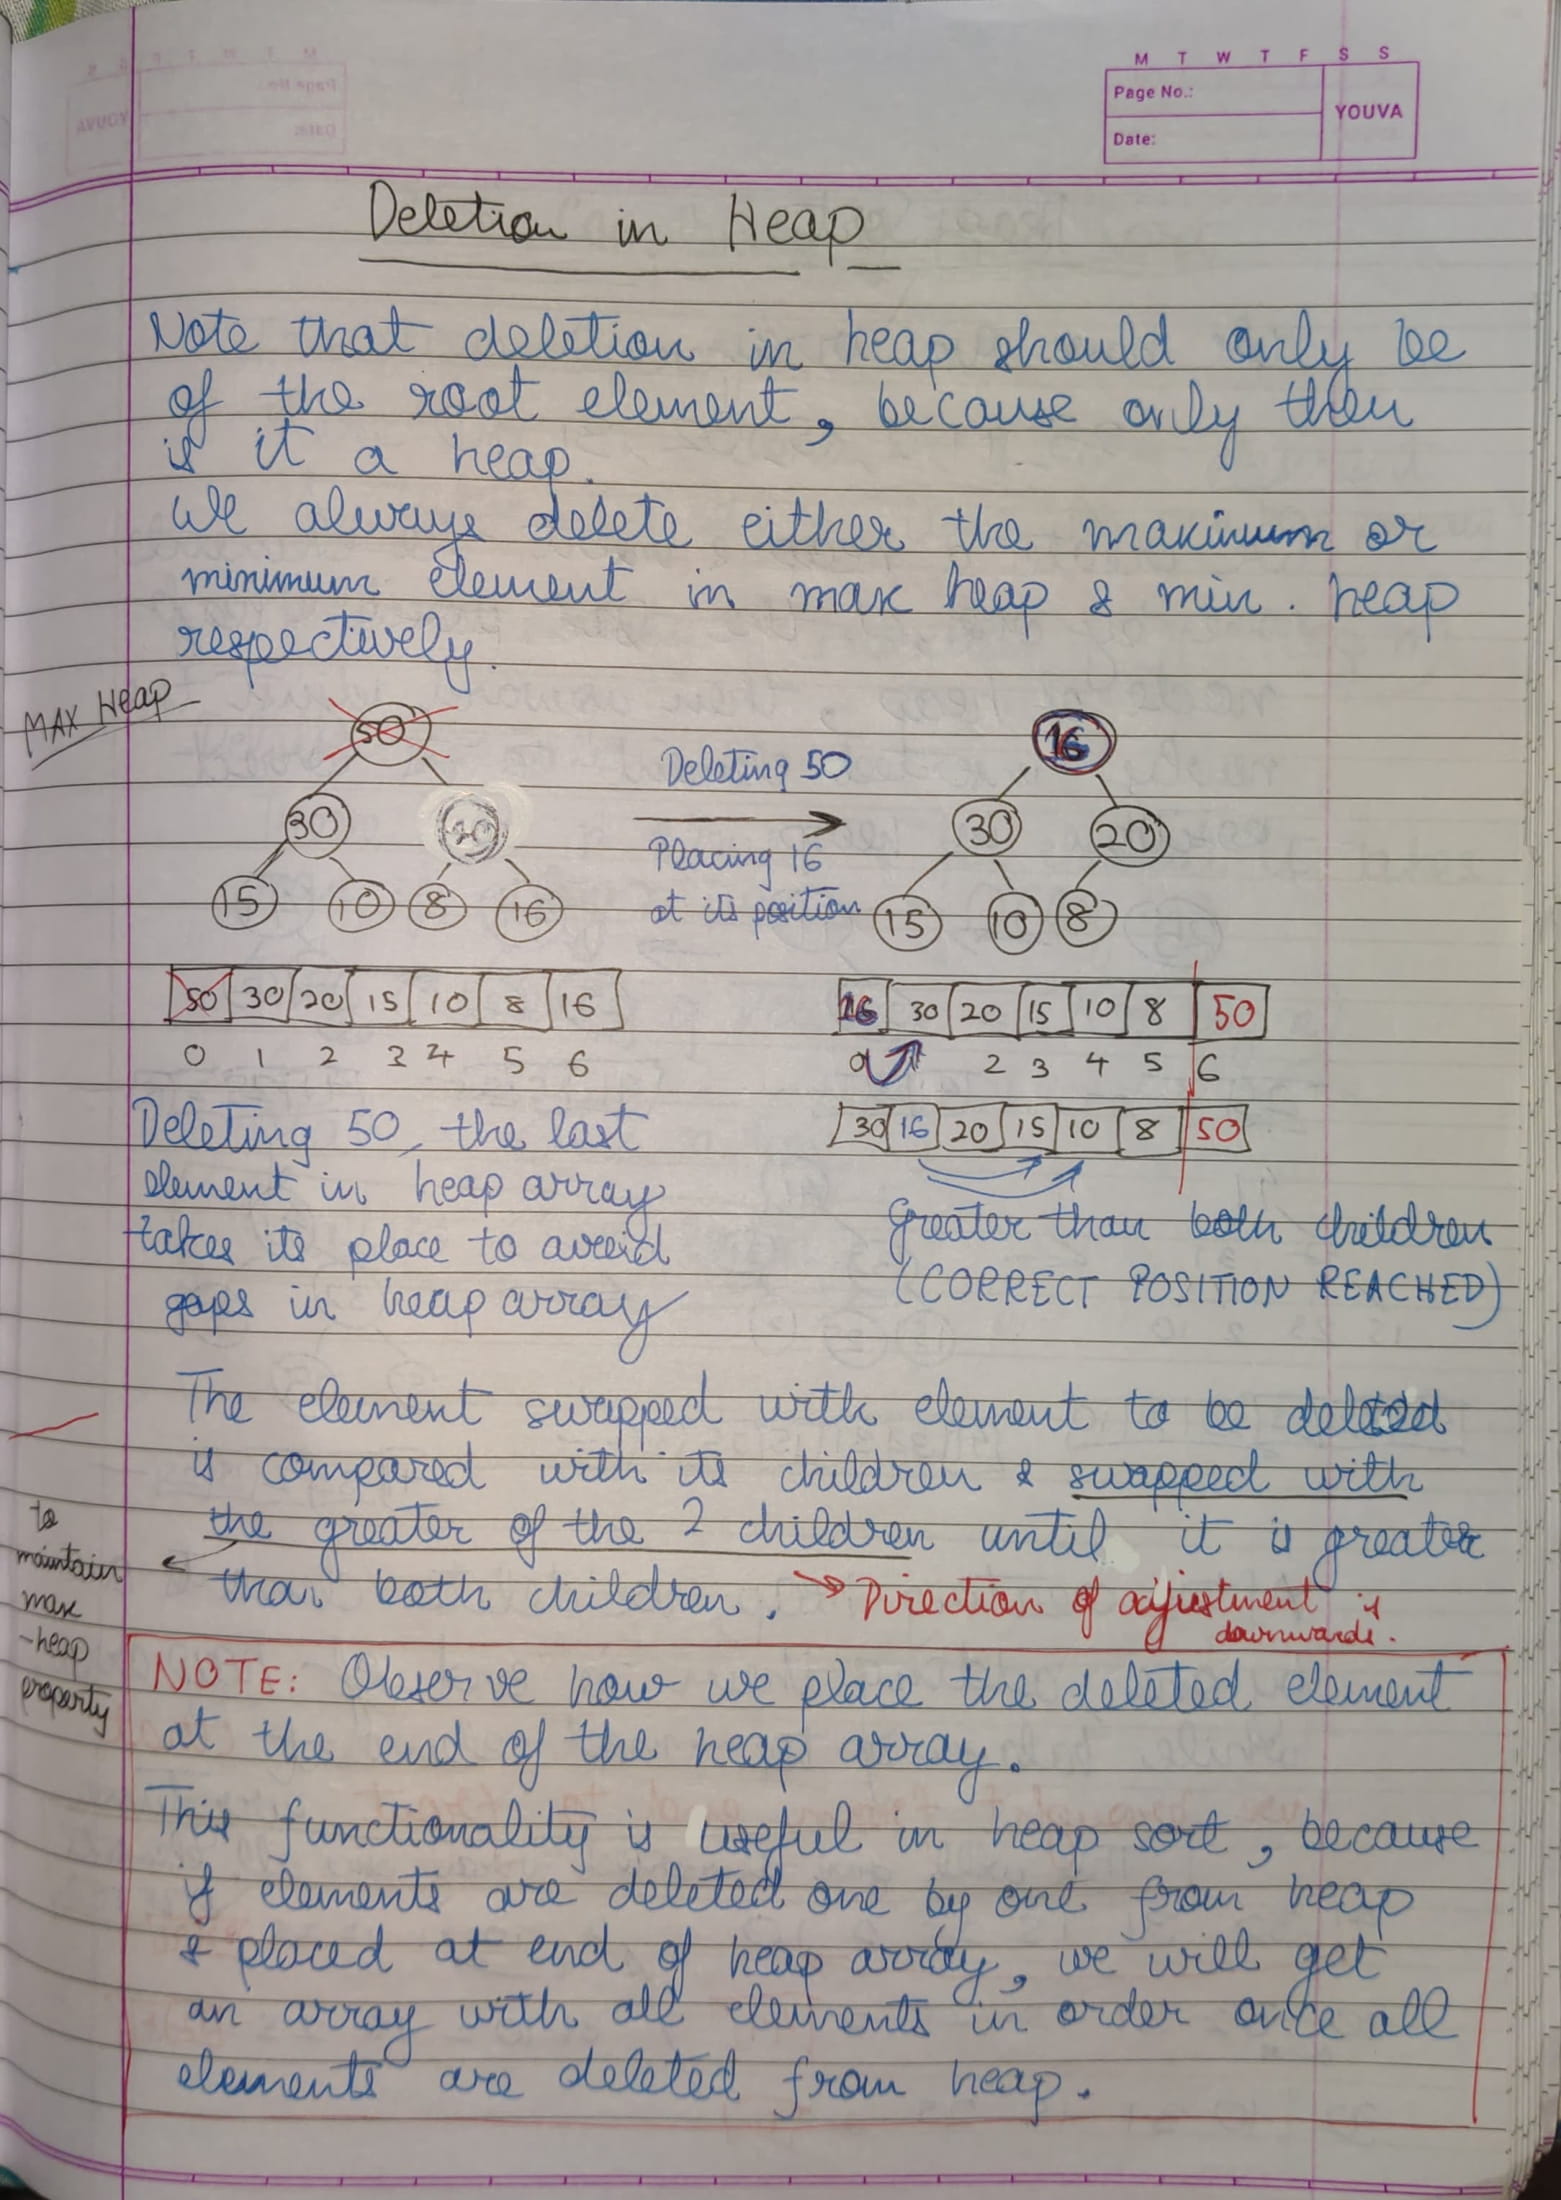 M T W T F S S
Page No.:
YOUVA
Date:
Deletion in Heap
Note that deletion in heap should only be
of the root element, because only then
is it a heap.
We always delete either the maximum or
minimum element in max heap & min. heap
respectively.
MAX Heap
50
30 20
15 10 8 16
Deleting 50
Placing 16
at its position
16
30 20
15 10 8
50 30 20 15 10 8 16
0 1 2 3 4 5 6
16 30 20 15 10 8 50
0 2 3 4 5 6
30 16 20 15 10 8 50
Deleting 50, the last
element in heap array
takes its place to avoid
gaps in heap array
Greater than both children
(CORRECT POSITION REACHED)
The element swapped with element to be deleted
is compared with its children & swapped with
the greater of the 2 children until it is greater
than both children. → Direction of adjustment is
downwards.
to
maintain
max
-heap
property
NOTE: Observe how we place the deleted element
at the end of the heap array.
This functionality is useful in heap sort, because
if elements are deleted one by one from heap
& placed at end of heap array, we will get
an array with all elements in order once all
elements are deleted from heap.